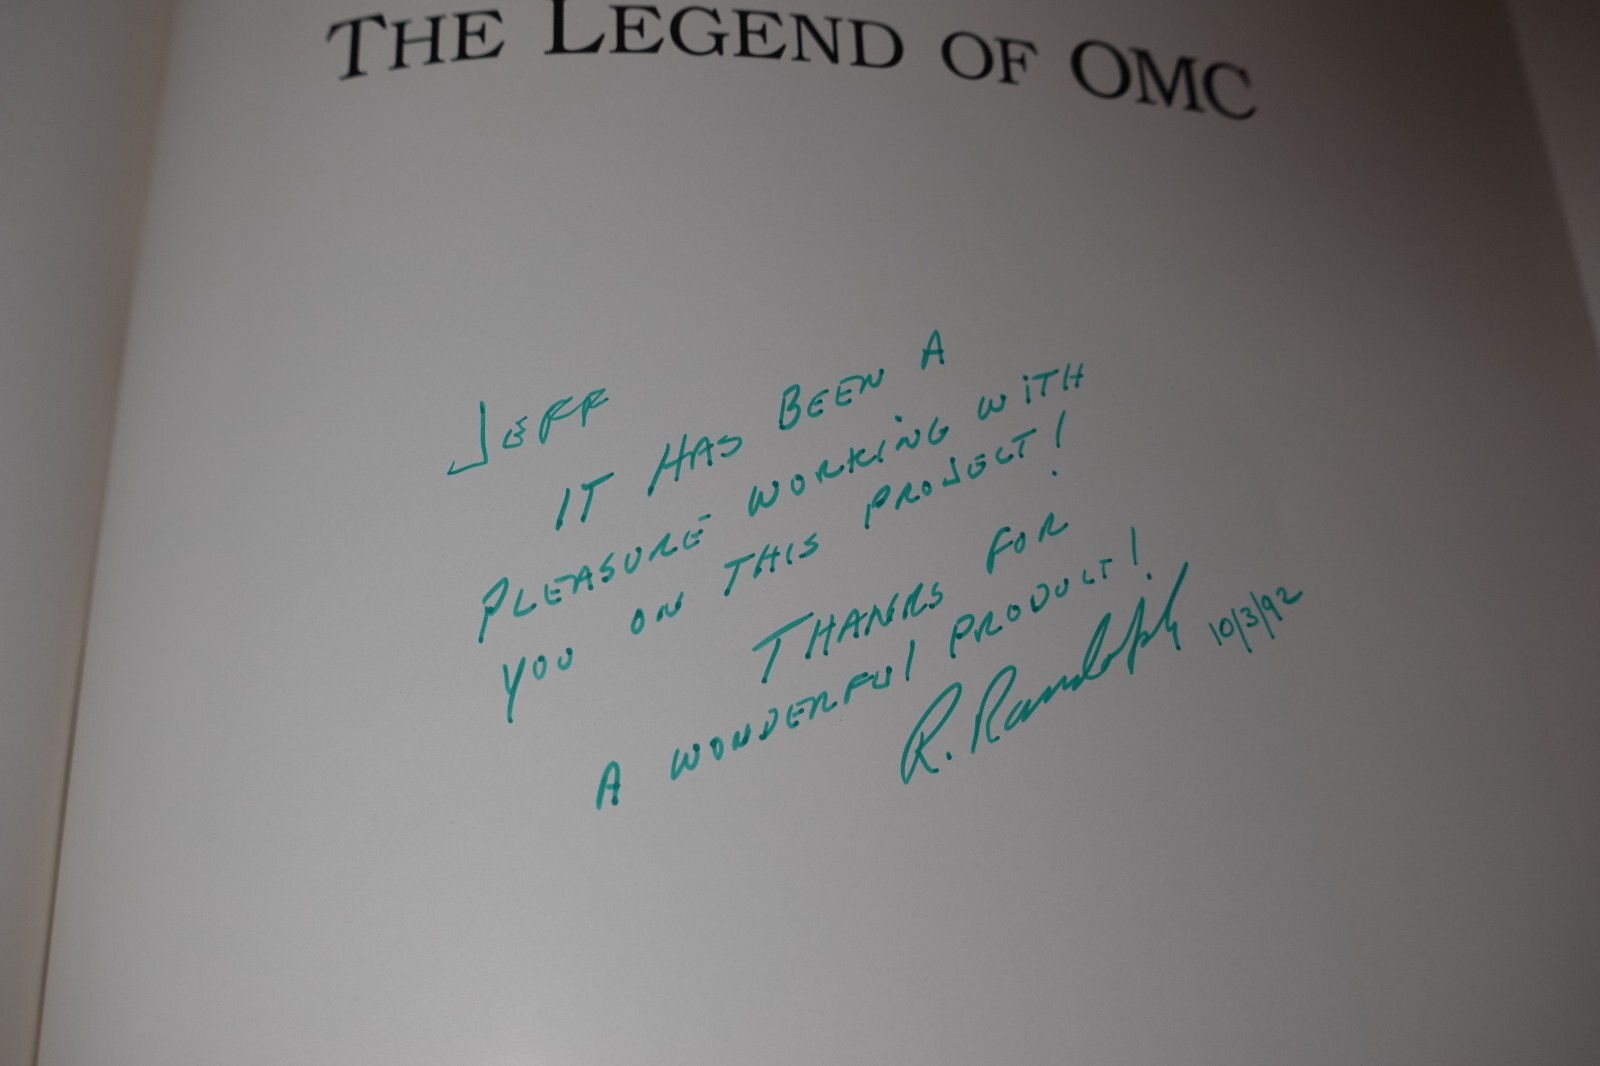 THE LEGEND OF OMC
JEFF
IT HAS BEEN A
PLEASURE WORKING WITH
YOU ON THIS PROJECT!
THANKS FOR
A WONDERFUL PRODUCT!
R. Randolph 10/3/92